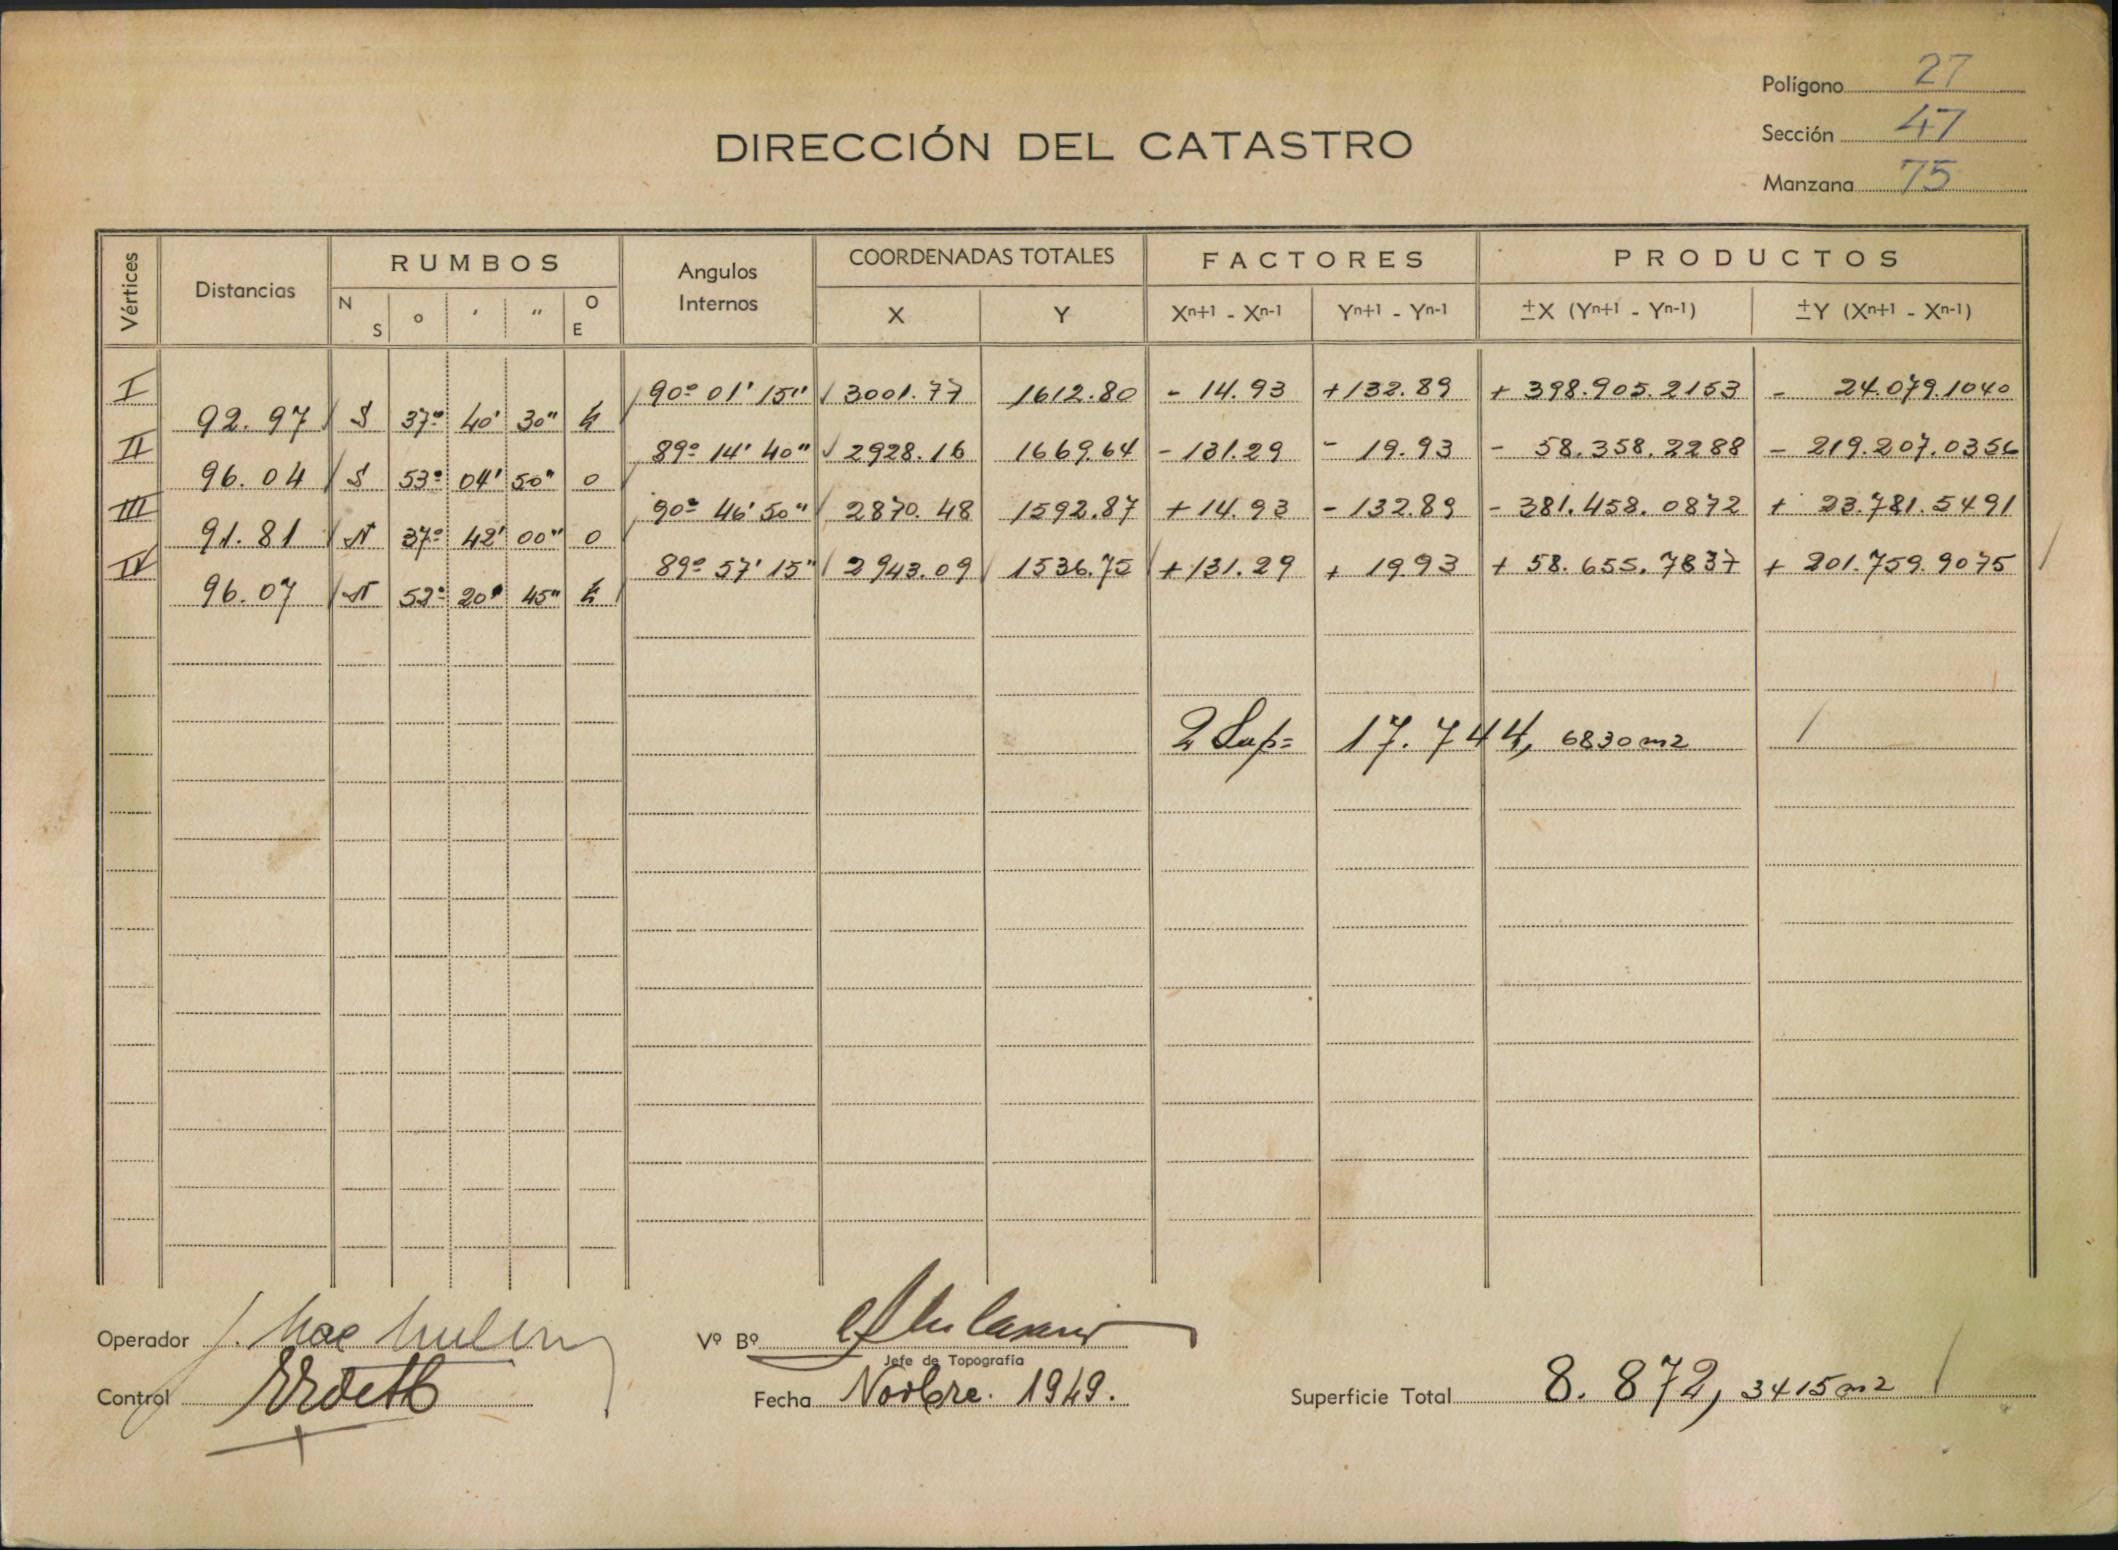 Polígono 27
Sección 47
Manzana 75
DIRECCIÓN DEL CATASTRO
Vértices Distancias RUMBOS Angulos Internos COORDENADAS TOTALES FACTORES PRODUCTOS
N S o ' " O E X Y Xn+1 - Xn-1 Yn+1 - Yn-1 ±X (Yn+1 - Yn-1) ±Y (Xn+1 - Xn-1)
I 90º 01' 15" 3001.77 1612.80 - 14.93 +132.89 + 398.905.2153 - 24.079.1040
92.97 S 37º 40' 30" E
II 89º 14' 40" 2928.16 1669.64 - 131.29 - 19.93 - 58.358.2288 - 219.207.0356
96.04 S 53º 04' 50" O
III 90º 46' 50" 2870.48 1592.87 + 14.93 - 132.89 - 381.458.0872 + 23.781.5491
91.81 N 37º 42' 00" O
IV 89º 57' 15" 2943.09 1536.75 + 131.29 + 19.93 + 58.655.7837 + 201.759.9075
96.07 N 52º 20' 45" E
2 Sup= 17.744, 6830 m2
Operador
Vº Bº
Jefe de Topografía
Control
Fecha Novbre. 1949.
Superficie Total 8.872, 3415 m2